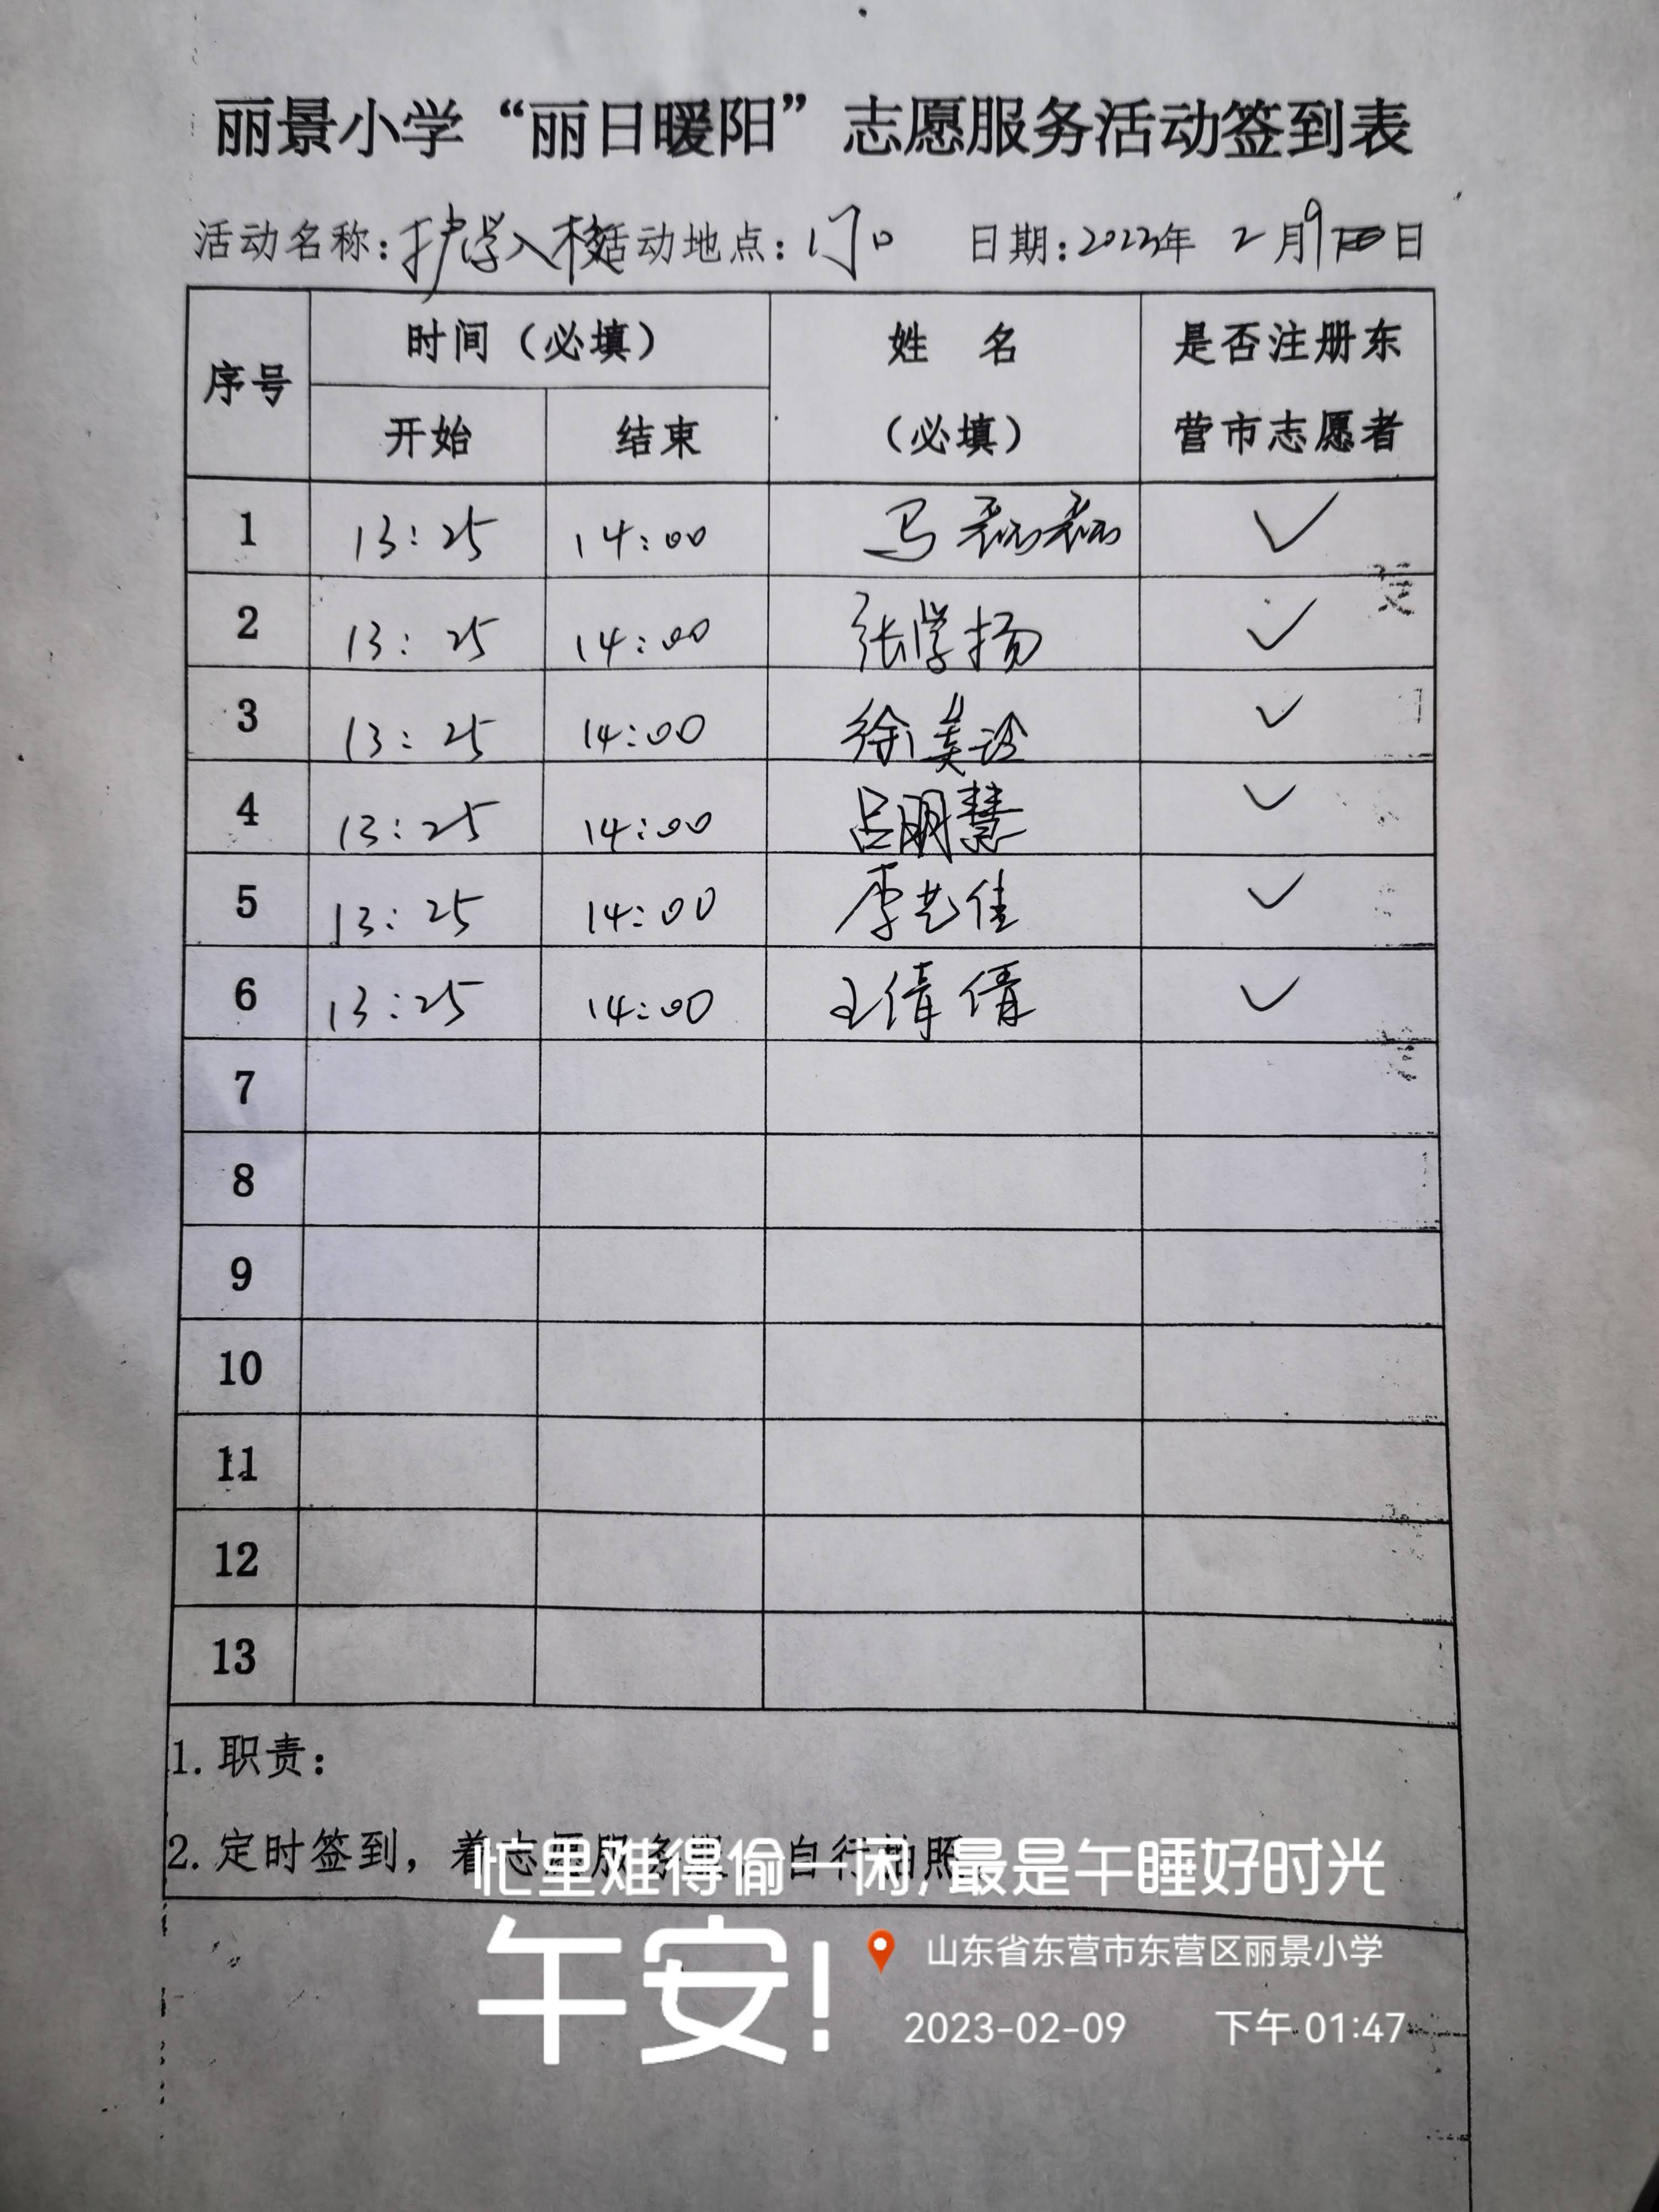 丽景小学“丽日暖阳”志愿服务活动签到表
活动名称：护学入校 活动地点：门口 日期：2023年 2月9日
序号 时间（必填） 姓 名（必填） 是否注册东营市志愿者
开始 结束
1 13:25 14:00 马磊磊 ✓
2 13:25 14:00 张学扬 ✓
3 13:25 14:00 徐美玲 ✓
4 13:25 14:00 吕明慧 ✓
5 13:25 14:00 李艺佳 ✓
6 13:25 14:00 王倩倩 ✓
7
8
9
10
11
12
13
1. 职责：
2. 定时签到，着志愿服务 自行拍照
忙里难得偷一闲，最是午睡好时光
午安！
山东省东营市东营区丽景小学
2023-02-09 下午 01:47